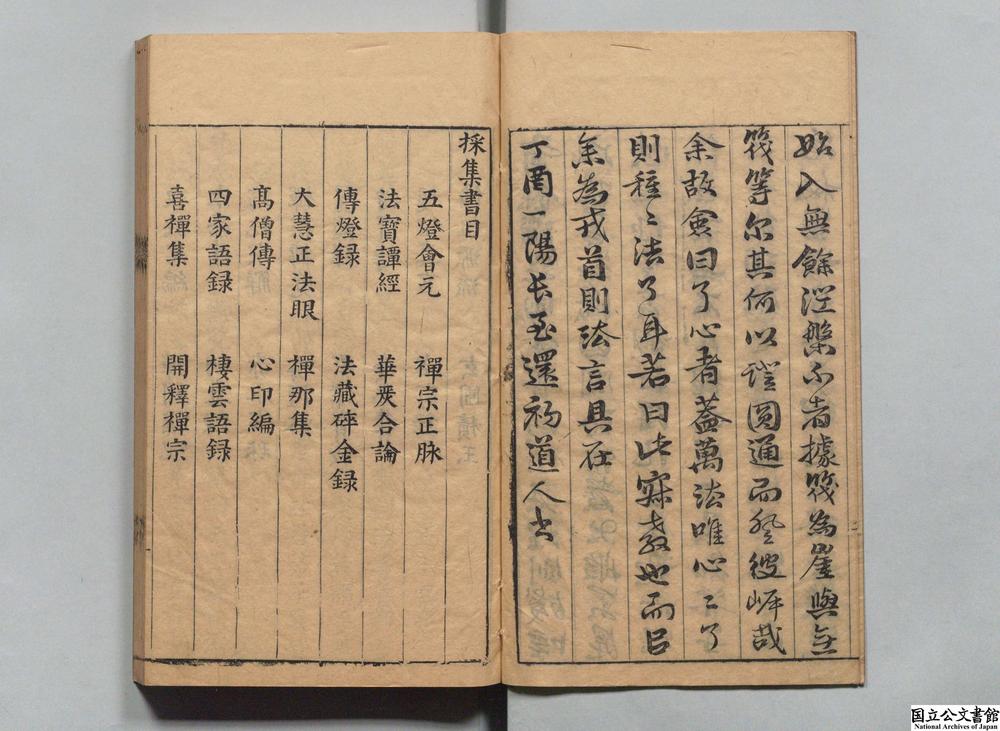 始入無餘涅槃不者據筏為崖與無
筏等尔其何以證圓通而登彼岸哉
余故曰了心者蓋萬法唯心〻了
則種〻法了耳若曰此教也而㠯
余為戎首則法言具在
丁酉一陽長至還初道人書
採集書目
五燈會元　禪宗正脉
法寶譚經　華嚴合論
傳燈録　法藏碎金録
大慧正法眼　禪那集
高僧傳　心印編
四家語録　棲雲語録
喜禪集　開釋禪宗
国立公文書館
National Archives of Japan